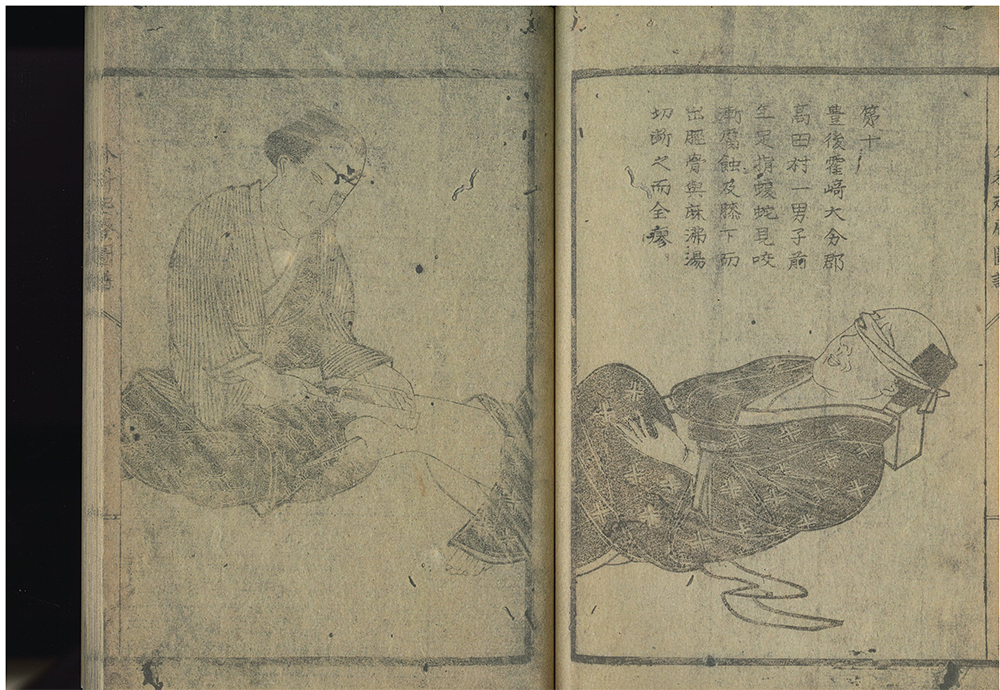 第十
豊後霍﨑大分郡
高田村一男子前
年足指蝮蛇見咬
漸腐蝕及膝下而
出脛骨與麻沸湯
切断之而全瘳